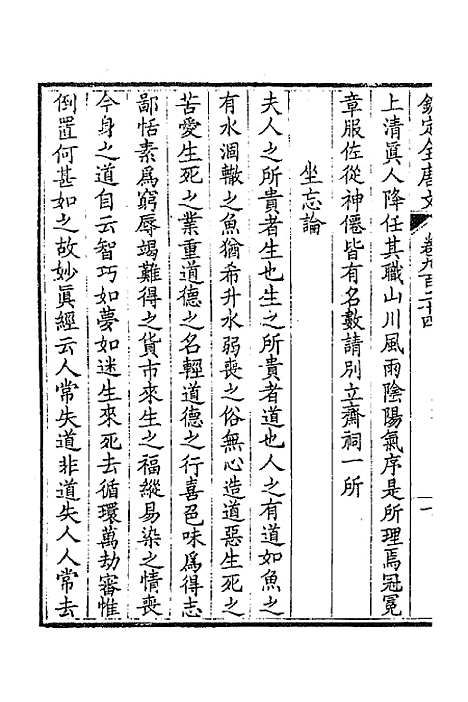 欽定全唐文 卷九百二十四 一
上清眞人降任其職山川風雨陰陽氣序是所理焉冠冕
章服佐從神僊皆有名數請別立齋祠一所
坐忘論
夫人之所貴者生也生之所貴者道也人之有道如魚之
有水涸轍之魚猶希升水弱喪之俗無心造道惡生死之
苦愛生死之業重道德之名輕道德之行喜色味爲得志
鄙恬素爲窮辱竭難得之貨市來生之福縱易染之情喪
今身之道自云智巧如夢如迷生來死去循環萬劫審惟
倒置何甚如之故妙眞經云人常失道非道失人人常去